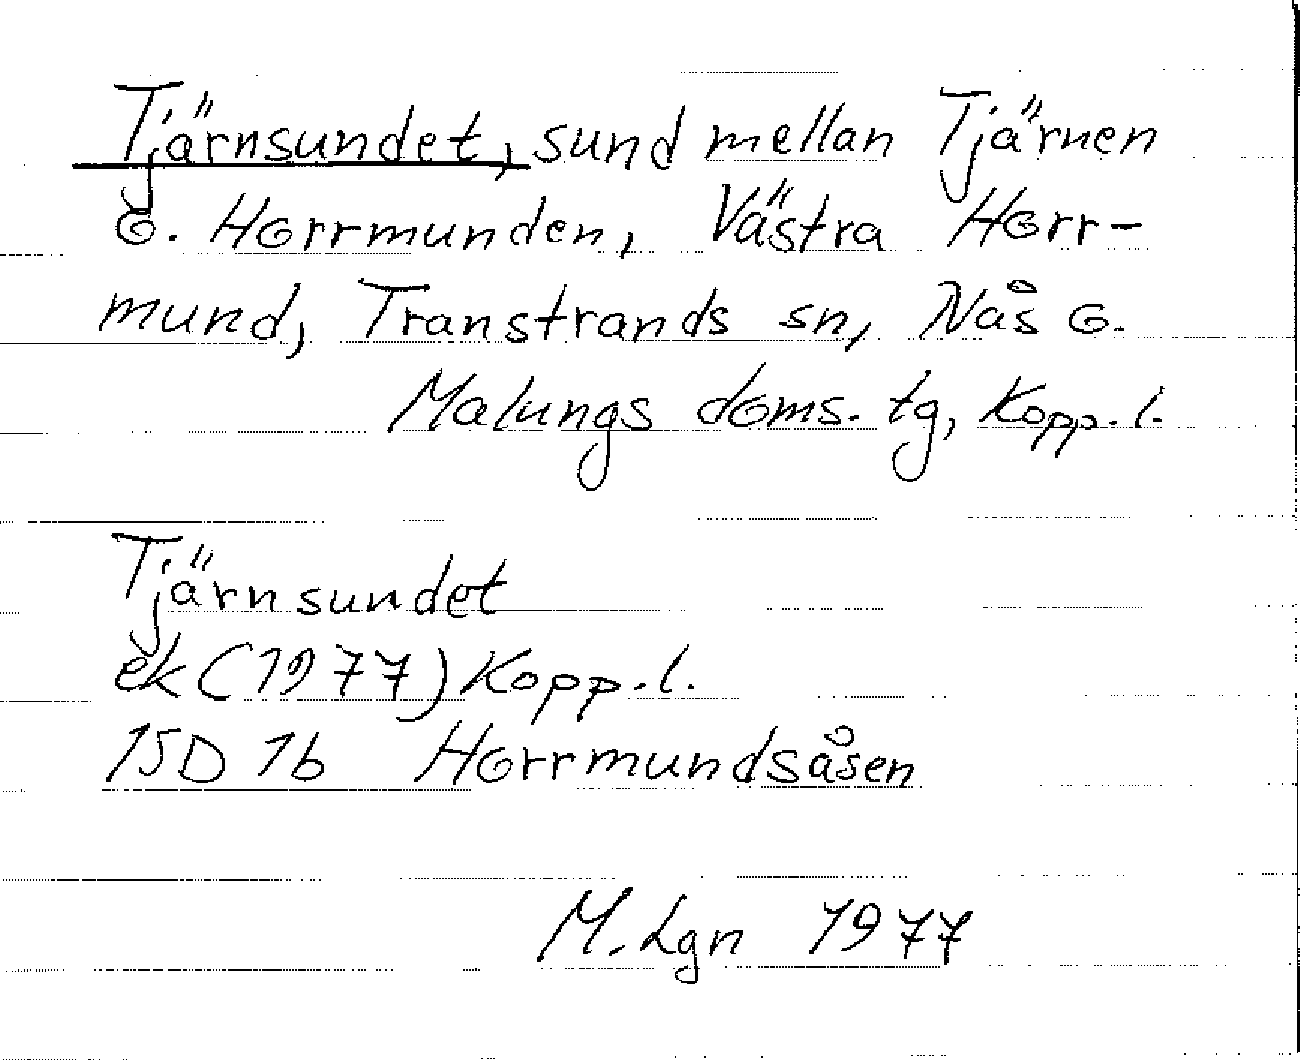 Tjärnsundet, sund mellan Tjärnen
o. Horrmunden, Västra Horr-
mund, Transtrands sn, Nås o.
Malungs doms. tg, Kopp. l.
Tjärnsundet
ek (1977) Kopp. l.
15D 1b Horrmundsåsen
M. Lgn 1977